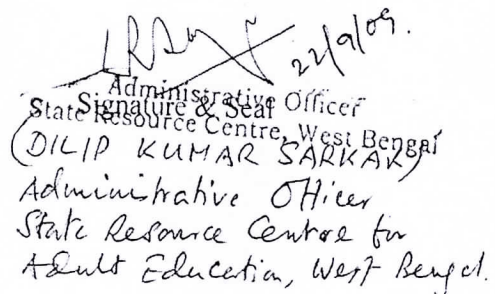 22/9/09.
Administrative Officer
Signature & Seal
State Resource Centre, West Bengal
(DILIP KUMAR SARKAR)
Administrative Officer
State Resource Centre for
Adult Education, West Bengal.